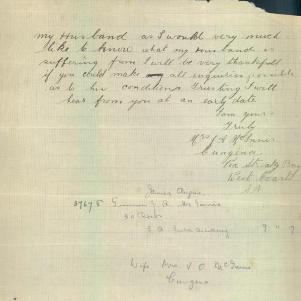 my Husband as I would very much
like to know what my Husband is
suffering from I will be very thankfull
if you could make all inquiries possible
as to his condition Trusting I will
hear from you at an early date
I am yours
Truly
Mrs J A McInnis
Cungena
Via Streaky Bay
West Coast
S.A.
James Angus
Gunner J. A. McInnis
Wife Mrs
Cungena